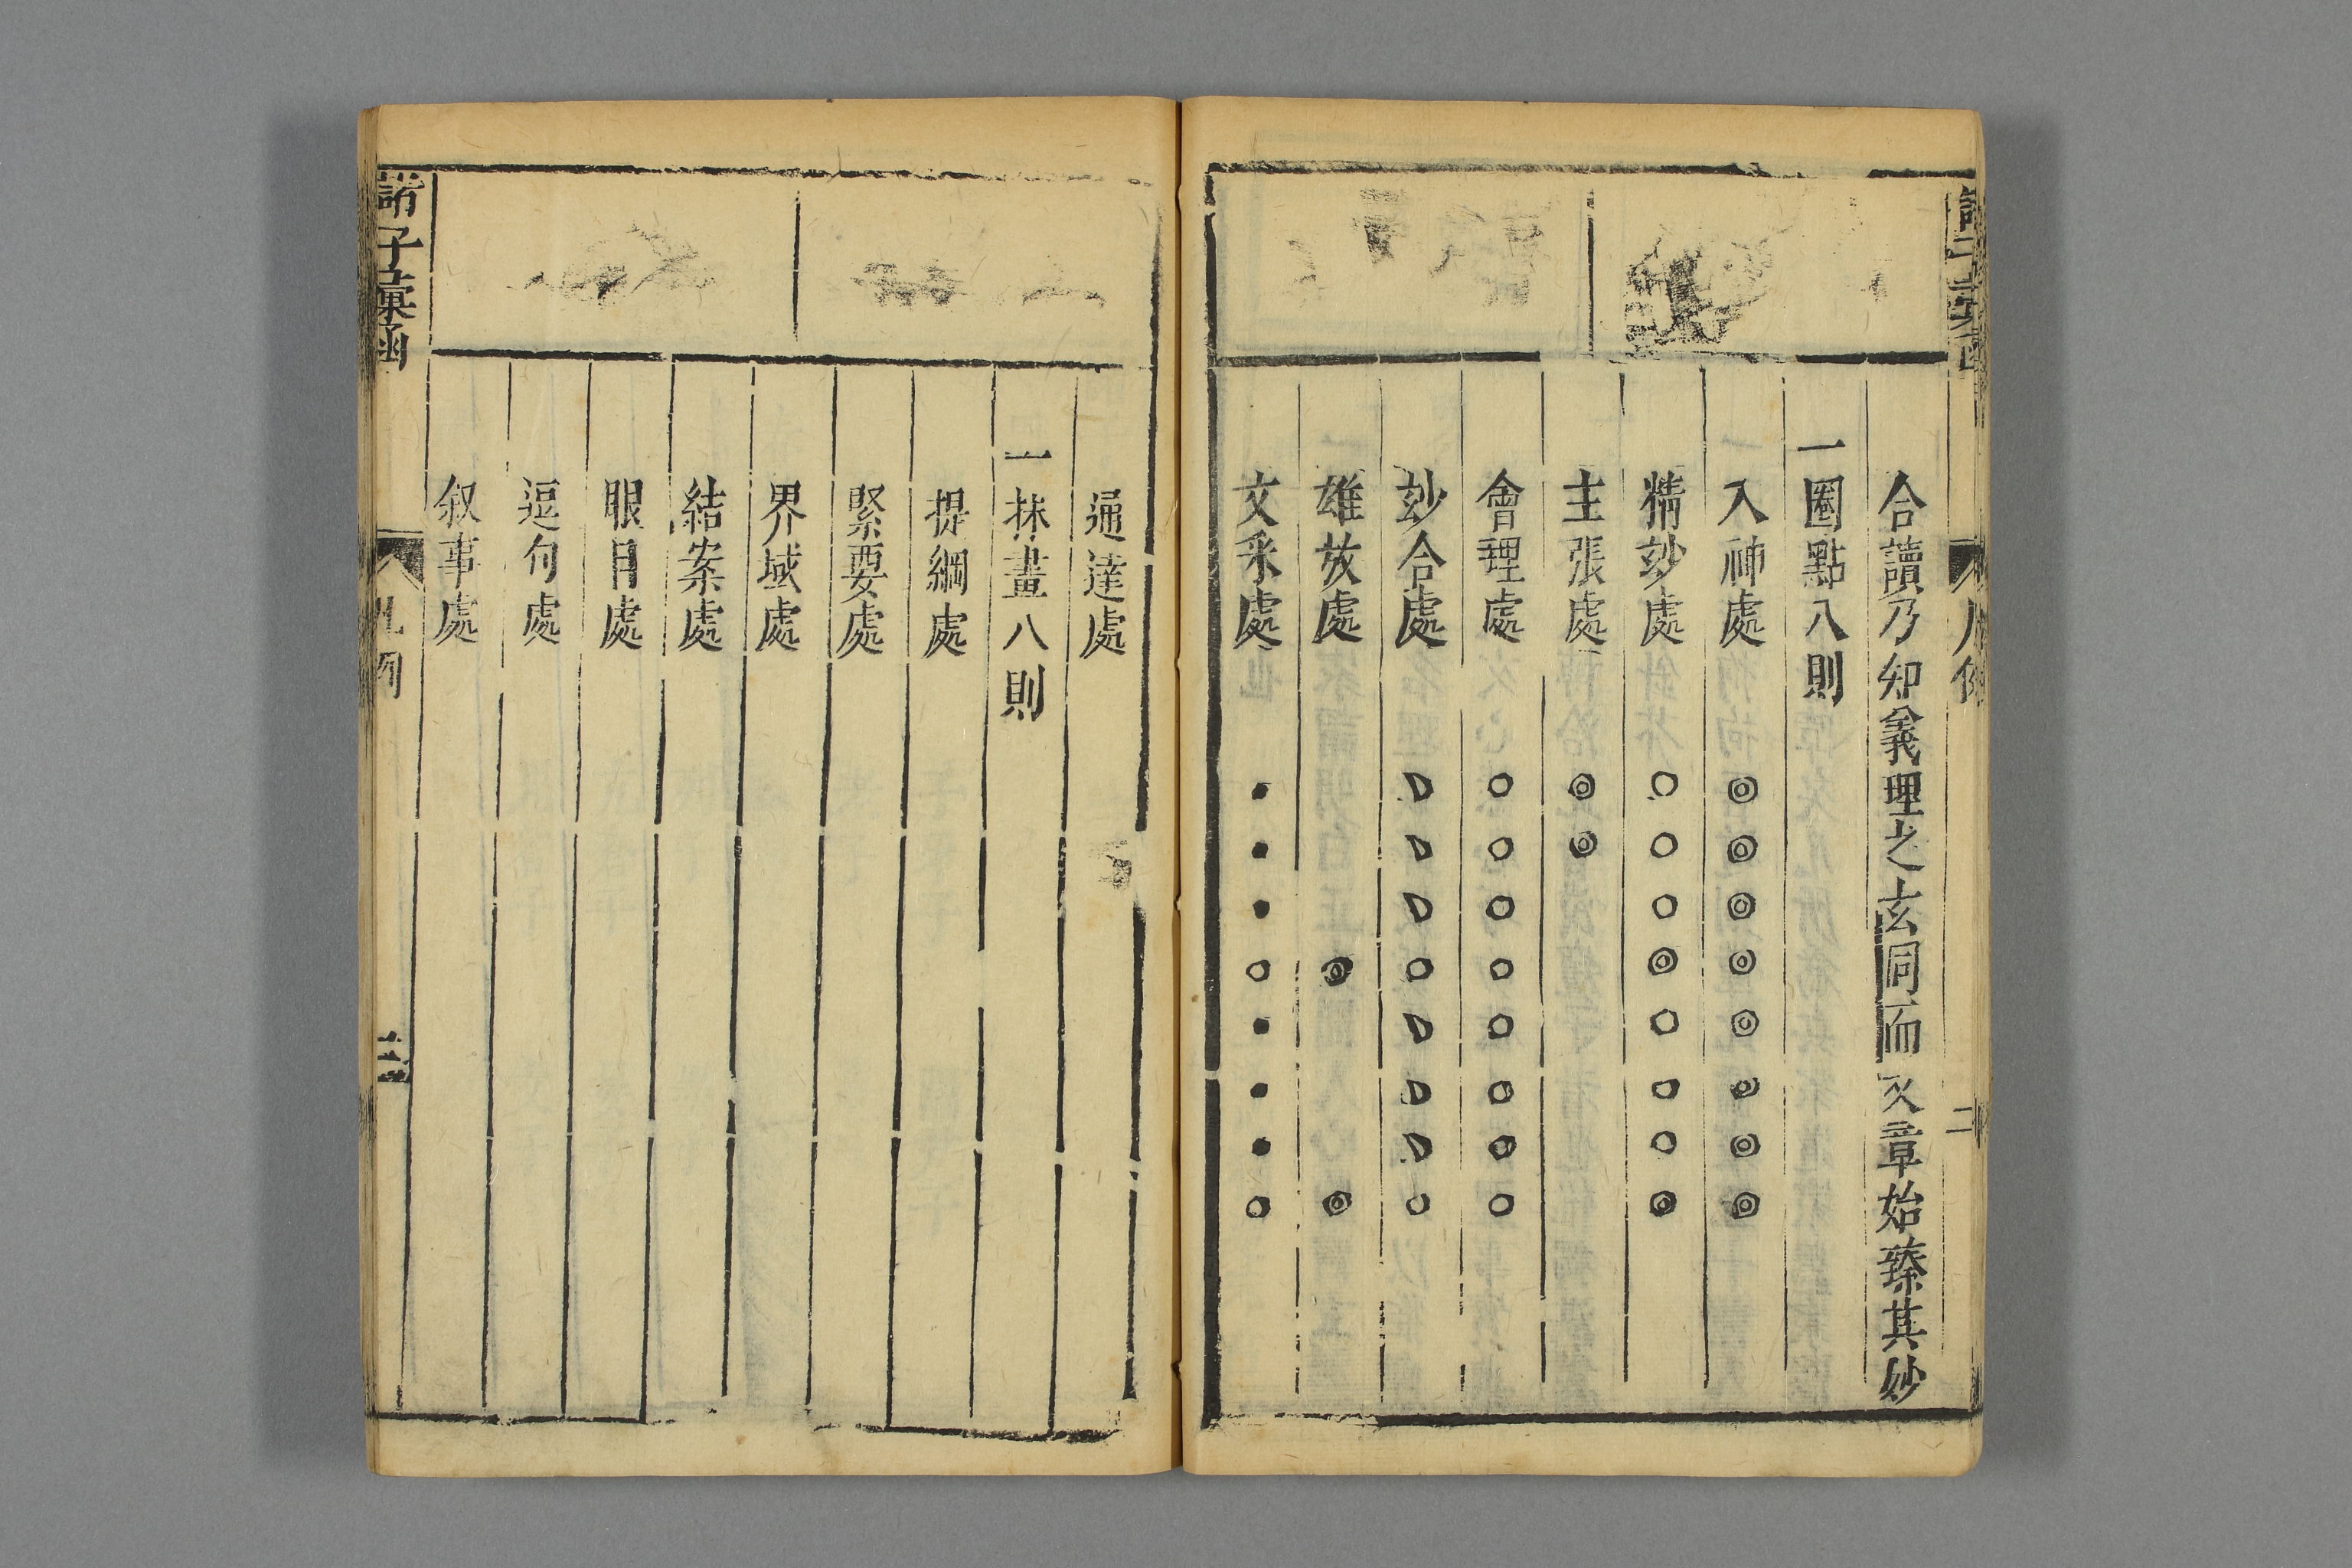 凡例
二
合讀乃知義理之玄同而文章始臻其妙
一圈點八則
入神處◎◎◎◎◎◎◎◎
精玅處○○○◎○○○◎
主張處◎◎
會理處○○○○○○○○
玅合處
雄放處◎◎
文采處●●●○●●●○
通達處
一抹畫八則
提綱處
緊要處
界域處
結案處
眼目處
逗句處
叙事處
諸子彙函
凡例
三